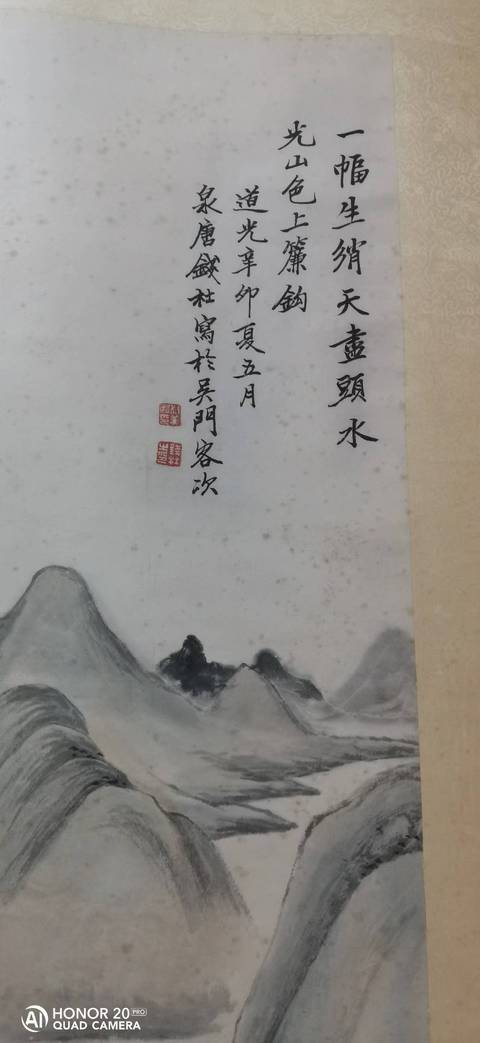 一幅生綃天盡頭水
光山色上簾鈎
道光辛卯夏五月
泉唐錢杜寫於吳門客次
HONOR 20 PRO
QUAD CAMERA